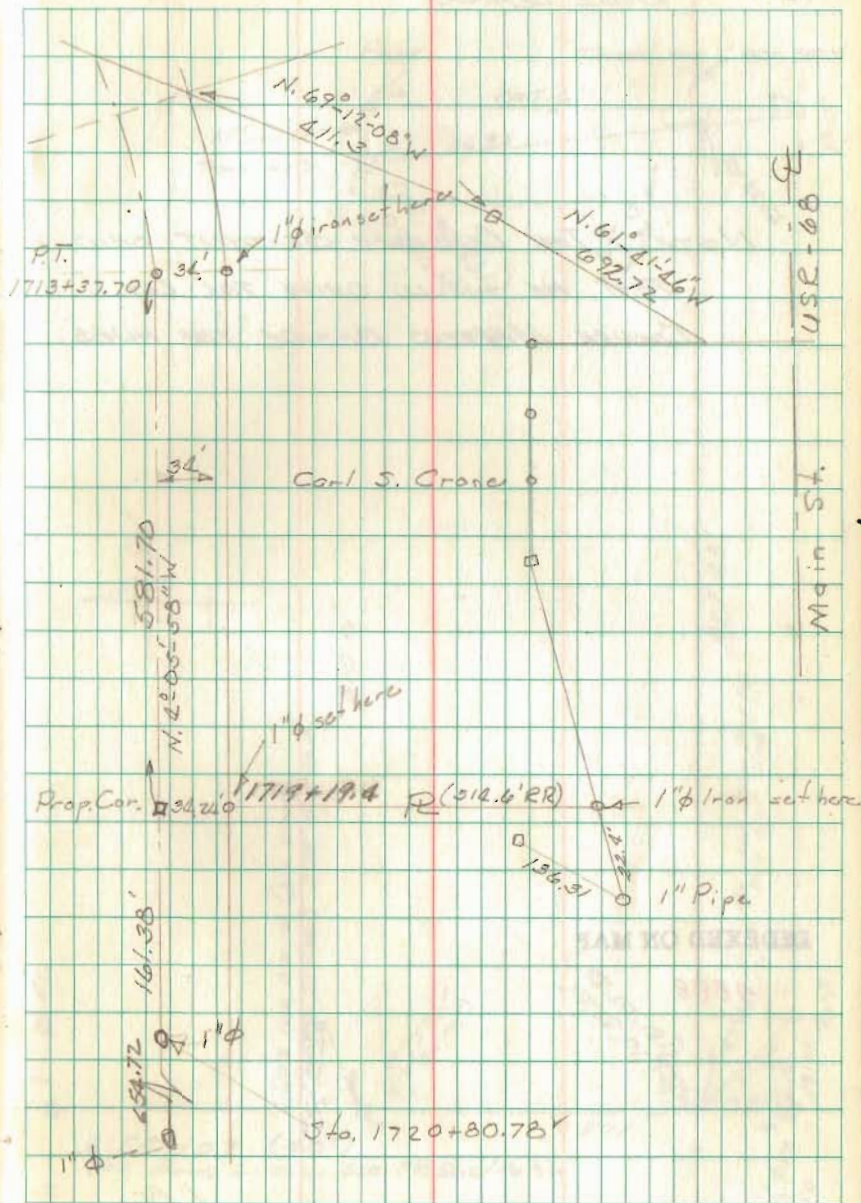 N. 69°-12'-08"W
411.3
1"ϕ iron set here
N. 61°-41'-46"W
692.72
USR-68
P.T.
1713+37.70
34'
34'
Carl S. Crone
Main St.
581.70
N. 4°-05'-58"W
1"ϕ set here
Prop. Cor.
34.24'
1719+19.4
PL (514.6' RR)
1"ϕ Iron set here
136.31
1" Pipe
161.38'
654.72
1"ϕ
Sta. 1720+80.78
1"ϕ
INDEXED ON MAP